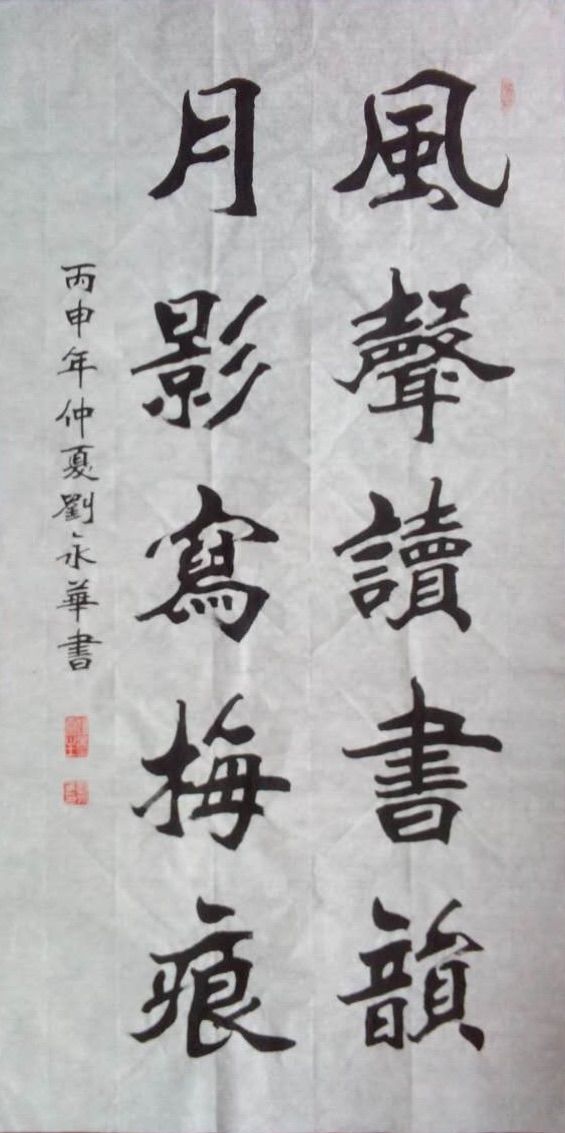 風聲讀書韻
月影寫梅痕
丙申年仲夏劉永華書